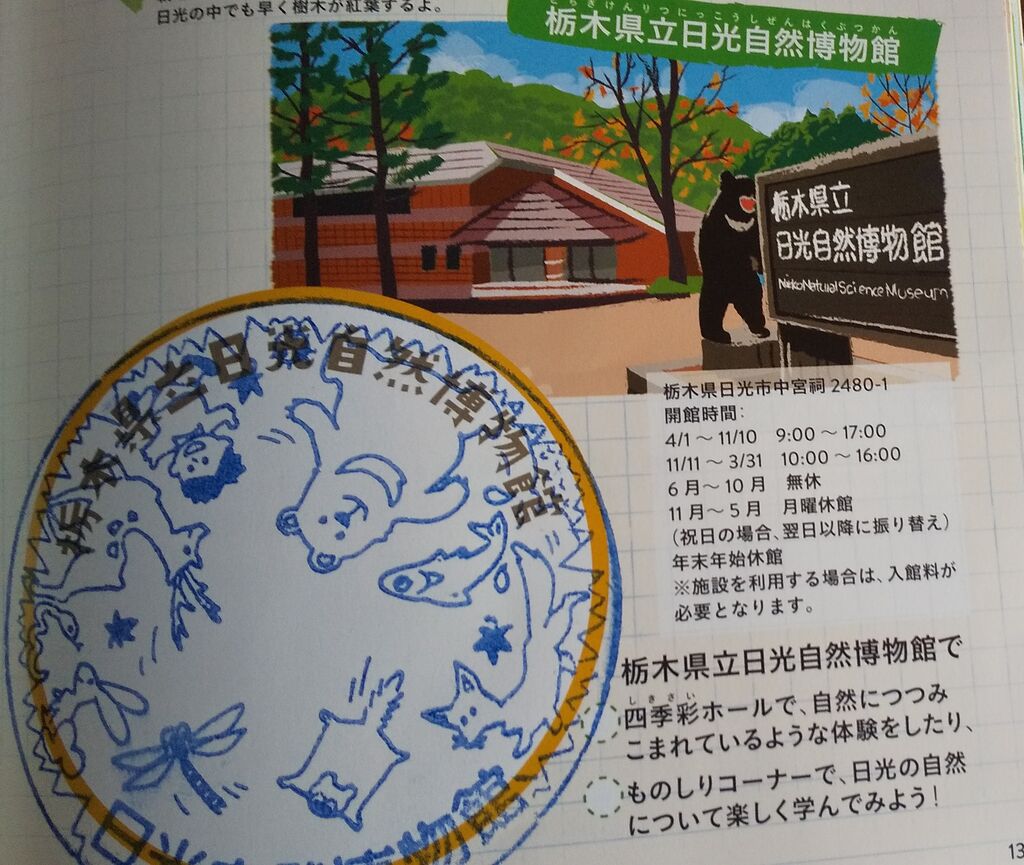 日光の中でも早く樹木が紅葉するよ。
とちぎけんりつにっこうしぜんはくぶつかん
栃木県立日光自然博物館
栃木県立
日光自然博物館
Nikko Natural Science Museum
栃木県立日光自然博物館
栃木県日光市中宮祠 2480-1
開館時間：
4/1 ～ 11/10 9:00 ～ 17:00
11/11 ～ 3/31 10:00 ～ 16:00
6 月～ 10 月 無休
11 月～ 5 月 月曜休館
（祝日の場合、翌日以降に振り替え）
年末年始休館
※施設を利用する場合は、入館料が
必要となります。
栃木県立日光自然博物館で
しきさい
四季彩ホールで、自然につつみ
こまれているような体験をしたり、
ものしりコーナーで、日光の自然
について楽しく学んでみよう！
日光自然博物館
13